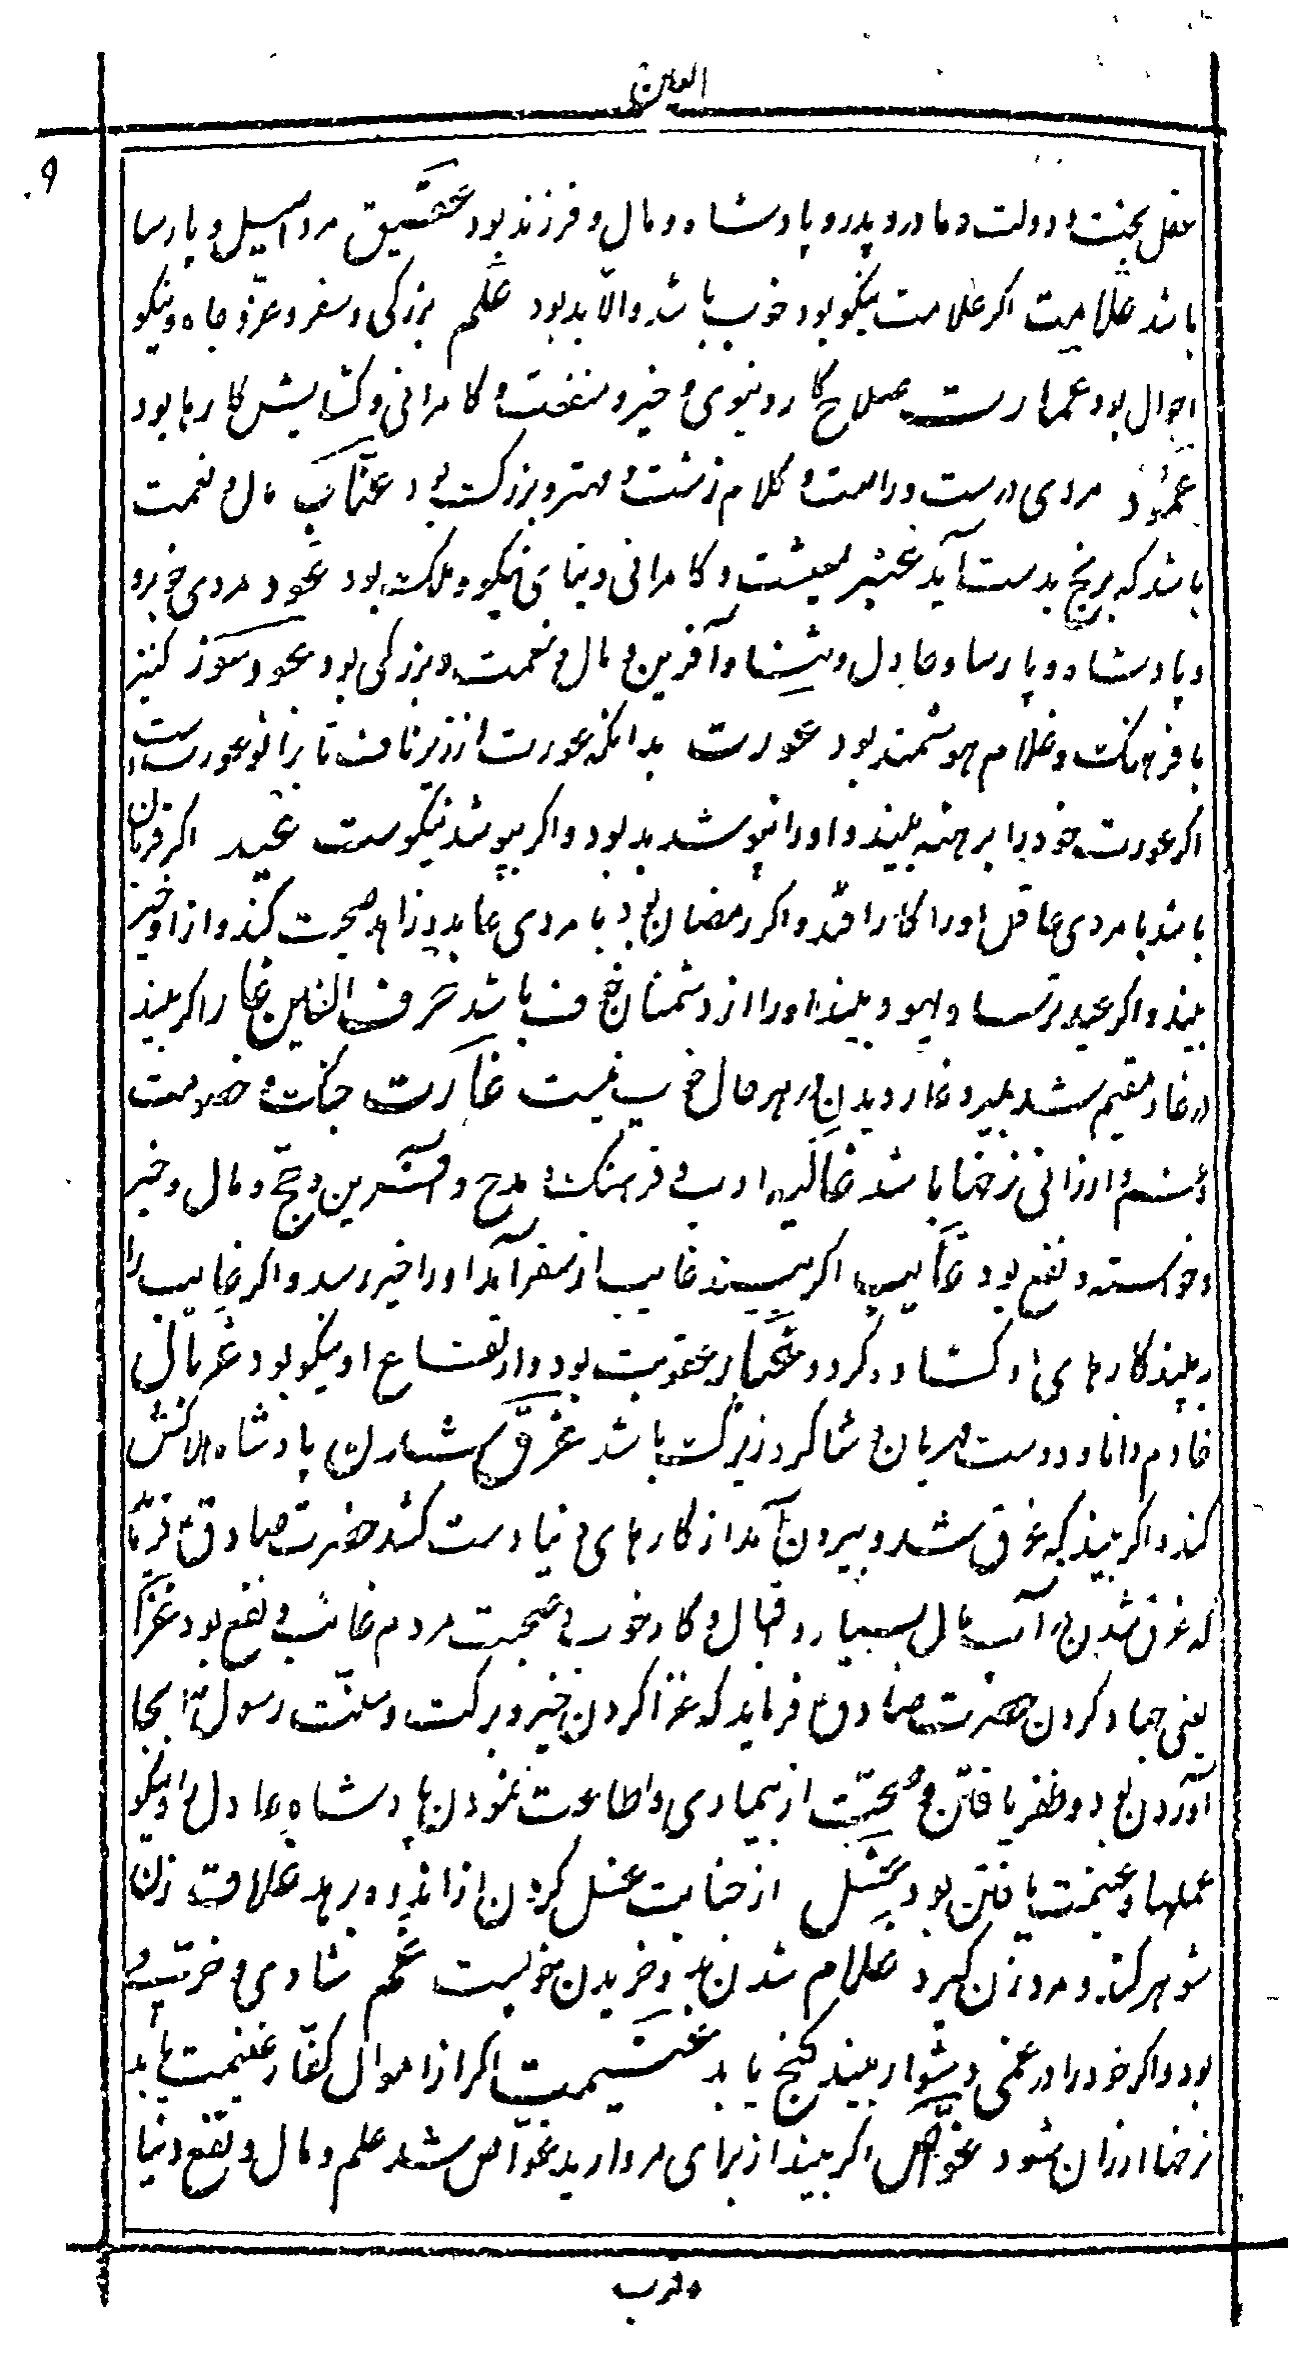 العین
۹
عقل بخت و دولت و مادر و پدر و پادشاه و مال و فرزند بود عقیق مرد اصیل و پارسا
باشد علامت اکر علامت نیکو بود خوب باشد والا بد بود علم بزرکی و سفر و عز و جاه و نیکو
احوال بود عمارت صلاح کار دنیوی و خیر و منفعت و کامرانی و کشایش کارها بود
عمود مردی درست و راست و کلام زشت و مهتر و بزرک بود عناب مال و نعمت
باشد که برنج بدست آید عنبر معیشت و کامرانی و ثنای نیکو و ملکت بود عود مردی خوبرو
و پادشاه و پارسا و عادل و ثنا و آفرین و مال و نعمت و بزرکی بود عود سوز کنیز
با فرهنک و غلام هوشمند بود عورت بدانکه عورت از زیر ناف تا بزانو عورت است
اکر عورت خود را برهنه بیند و او را نپوشد بد بود و اکر بپوشد نیکوست عید اکر قربان
باشد با مردی عاقل او را کار افتد و اکر رمضان بود با مردی عابد و زاهد صحبت کند و از او خیر
بیند و اکر عید ترسا و یهود بیند او را از دشمنان خوف باشد حرف الغین غار اکر بیند
در غار مقیم شد بمیرد و غار دیدن در هر حال خوب نیست غارت جنک و خصومت
و ستم و ارزانی نرخها باشد غالیه ادب و فرهنک و مدح و آفرین و حج و مال و خیر
و خواسته و نفع بود غایب اکر بیند غایب از سفر آمد او را خیر رسد و اکر غایب را
بیند کارهای او کشاده کردد غبار عقوبت بود و ارتفاع او نیکو بود غربال
خادم دانا و دوست مهربان و شاکرد زیرک باشد غرق شدن پادشاه هلاکش
کند و اکر بیند که غرق شد و بیرون آمد از کارهای دنیا دست کشد حضرت صادق ع فرماید
که غرق شدن در آب مال بسیار و اقبال و کار خوب و صحبت مردم غائب و نفع بود غزا
یعنی جهاد کردن حضرت صادق ع فرماید که غزا کردن خیر و برکت و سنت رسول ص بجا
آوردن بود و ظفر یافتن و صحت از بیماری و اطاعت نمودن پادشاه عادل و نیکو
عملها و غنیمت یافتن بود غسل از جنابت غسل کردن از اندوه برهد غلاف زن
شوهر کند و مرد زن کیرد غلام شدن بد و خریدن خوبست غم شادی و خرمی
بود و اکر خود را در غمی دشوار بیند کنج یابد غنیمت اکر از اموال کفار غنیمت یابد
نرخها ارزان شود غواص اکر بیند از برای مروارید غواص شد علم و مال و نفع دنیا